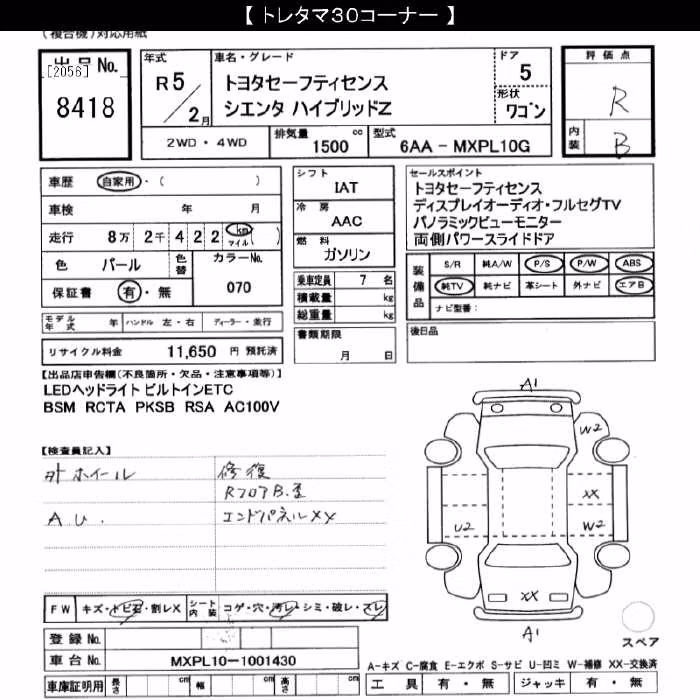 【 トレタマ30コーナー 】
(複合機)対応用紙
出品No.
[2056]
8418
年式
R5/2月
車名・グレード
トヨタセーフティセンス
シエンタ ハイブリッドZ
ドア
5
形状
ワゴン
評価点
R
内装
B
2WD・4WD
排気量
1500 cc
型式
6AA - MXPL10G
車歴 自家用・( )
車検 年 月
走行 8万 2千 4 2 2 km マイル ( )
色 パール 色替 カラーNo. 070
保証書 有・無
シフト
IAT
冷房
AAC
燃料
ガソリン
乗車定員 7 名
積載量 kg
総重量 kg
書類期限
月 日
セールスポイント
トヨタセーフティセンス
ディスプレイオーディオ・フルセグTV
パノラミックビューモニター
両側パワースライドドア
装備品
S/R 純A/W P/S P/W ABS
純TV 純ナビ 革シート 外ナビ エアB
ナビ型番:
後日品
モデル年式 年 ハンドル 左・右 ディーラー・並行
リサイクル料金 11,650 円 預託済
【出品店申告欄(不良箇所・欠品・注意事項等)】
LEDヘッドライト ビルトインETC
BSM RCTA PKSB RSA AC100V
【検査員記入】
外ホイール
A U.
修復
エンドパネルXX
A1
W2
XX
U2
W2
XX
A1
スペア
FW キズ・トビ石・割レX シート内装 コゲ・穴・汚レ・シミ・破レ・スレ
登録No.
車台No. MXPL10-1001430
車庫証明用 長さ cm 幅 cm 高さ cm
A-キズ C-腐食 E-エクボ S-サビ U-凹ミ W-補修 XX-交換済
工具 有・無 ジャッキ 有・無